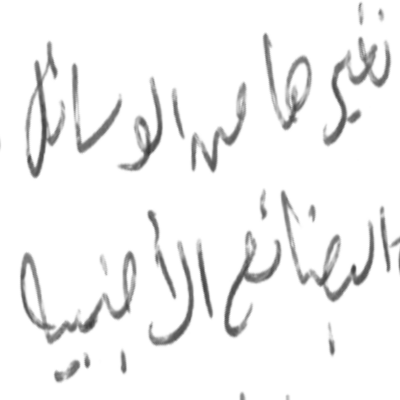 بغيرها من الوسائل
البضائع الأجنبية